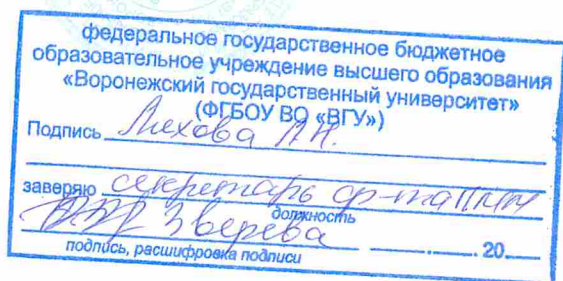 федеральное государственное бюджетное
образовательное учреждение высшего образования
«Воронежский государственный университет»
(ФГБОУ ВО «ВГУ»)
Подпись Ляхова Л.Н.
заверяю секретарь ф-та ПММ
должность
Зверева 20
подпись, расшифровка подписи